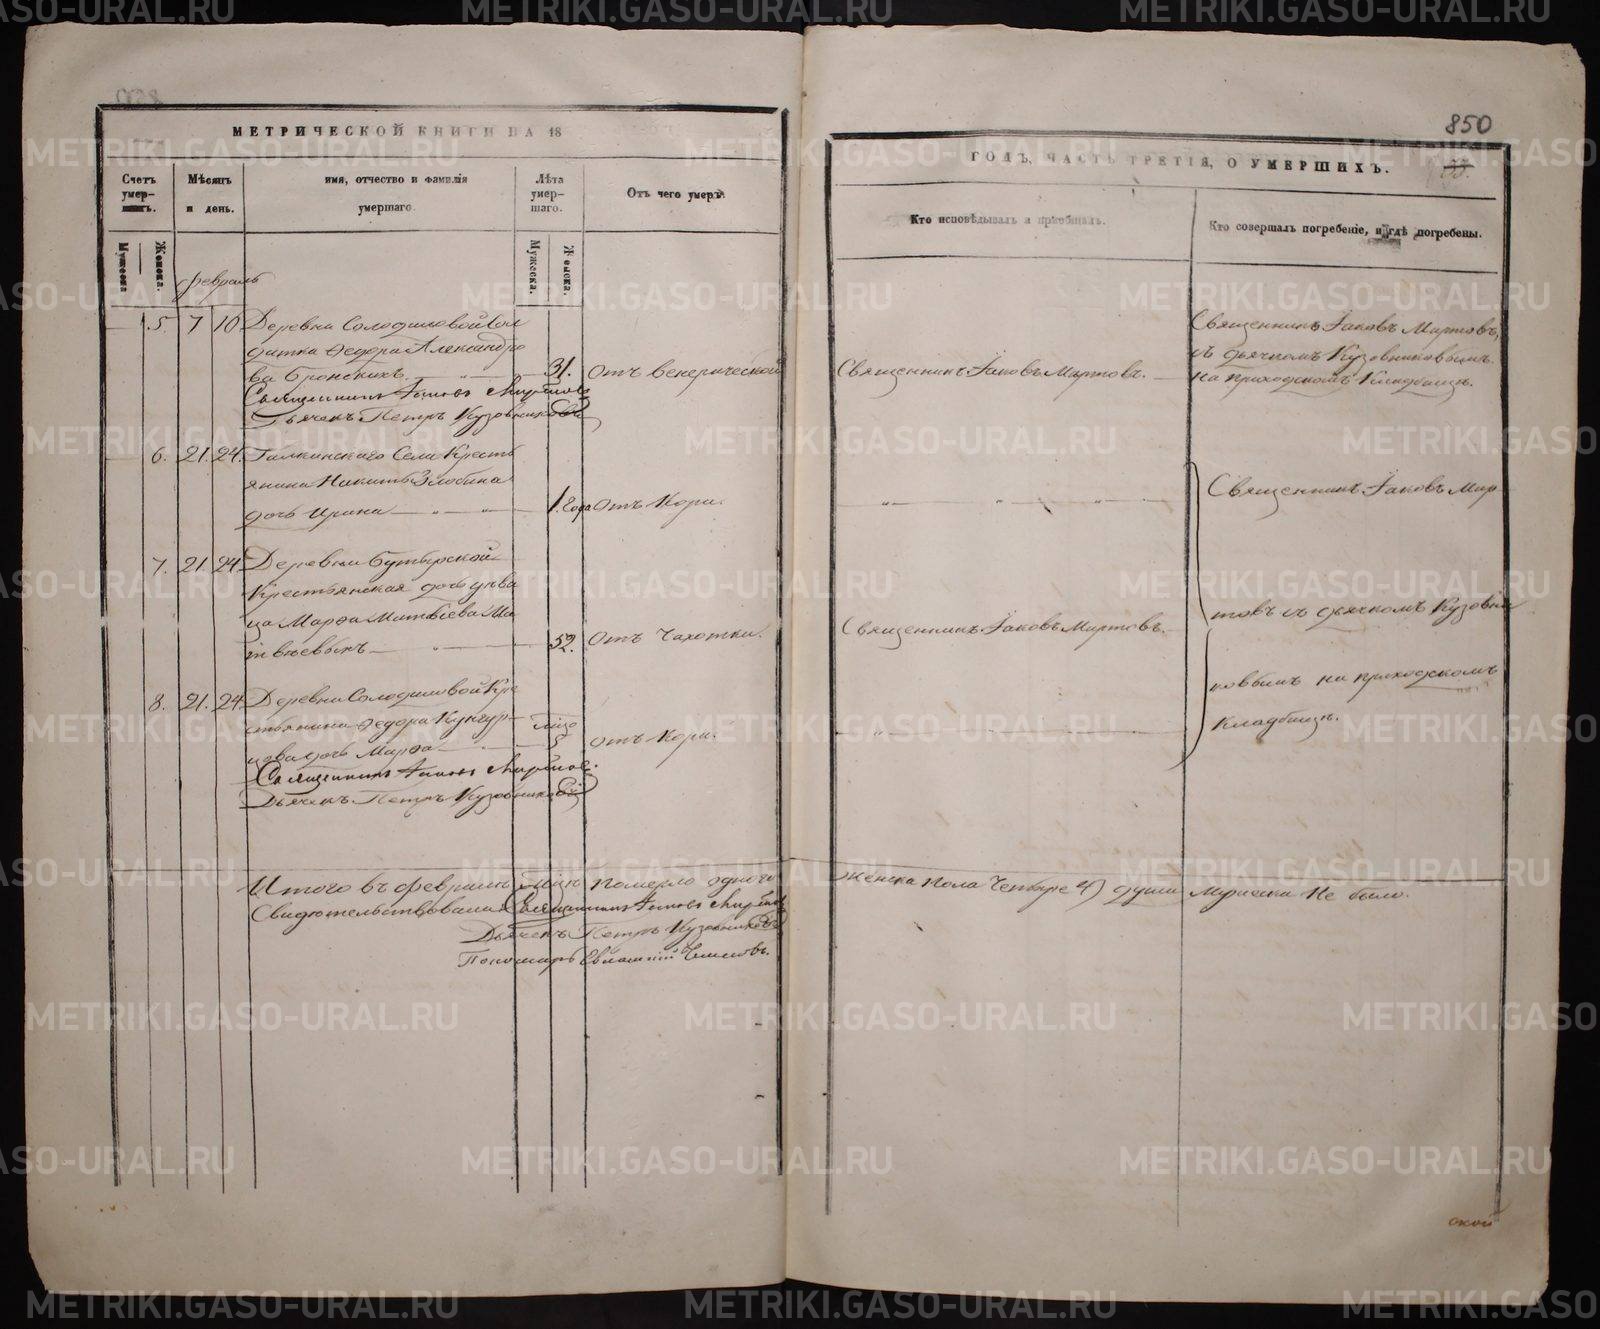 850
МЕТРИЧЕСКОЙ КНИГИ НА 18
ГОДЪ, ЧАСТЬ ТРЕТІЯ, О УМЕРШИХЪ.
Счетъ умер-шихъ.
Мѣсяцъ и день.
имя, отчество и фамилія умершаго.
Лѣта умер-шаго.
Отъ чего умеръ.
Кто исповѣдывалъ и пріобщалъ.
Кто совершалъ погребеніе, и гдѣ погребены.
Мужеска
Женска.
Мужеска.
Женска.
февраль
5. 7 10 Деревни Солодиловой Сол
датка Федора Александро
ва Бронскихъ. 31. отъ венерической
Священникъ Іаковъ Мартовъ.
Священникъ Іаковъ Мартовъ,
съ дьячкомъ Кузовниковымъ.
на приходскомъ Кладбищѣ.
Священникъ Іаковъ Мартовъ
Дьячекъ Петръ Кузовниковъ
6. 21. 24. Галкинскаго Села Кресть
янина Никиты Злобина
дочь Ирина 1. года отъ Кори.
Священникъ Іаковъ Мар
7. 21. 24. Деревни Бутырской
Крестьянская дочь
ца Марѳа Матвѣева Ма
твѣевыхъ 52. отъ Чахотки.
Священникъ Іаковъ Мартовъ.
товъ съ дьячкомъ Кузовни
ковымъ на приходскомъ
Кладбищѣ.
8. 21. 24. Деревни Солодиловой Кре
стьянина Федора Кунгур
цова дочь Марѳа 5 отъ Кори.
Священникъ Іаковъ Мартовъ.
Дьячекъ Петръ Кузовниковъ
Итого въ февралѣ мѣсяцѣ померло одного
женска пола Четыре 4) души Мужеска не было.
Свидѣтельствовали Священникъ Іаковъ Мартовъ
Дьячекъ Петръ Кузовниковъ
Пономарь Евлампій
ской
METRIKI.GASO-URAL.RU